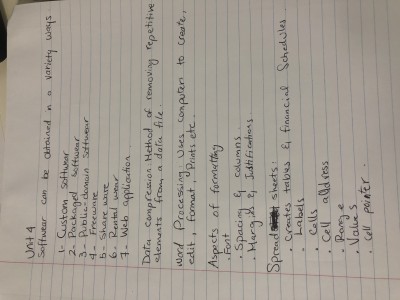 Unit 4
Softwear can be obtained in a variety ways.
1- Custom softwear
2- Packaged softwear
3- Public-domain softwear
4- Freeware
5- Shareware
6- Rental wear
7- Web application.
Data compression: Method of removing repetitive
elements from a data file.
Word Processing: Uses computer to create,
edit, format, Prints etc.
Aspects of formatting
- Font
- Spacing & columns
- Margins & Jultifications
Spread sheets:
- Creates tables & financial Schedules
- Labels
- Cells
- Cell address
- Range
- Values
- Cell pointer.